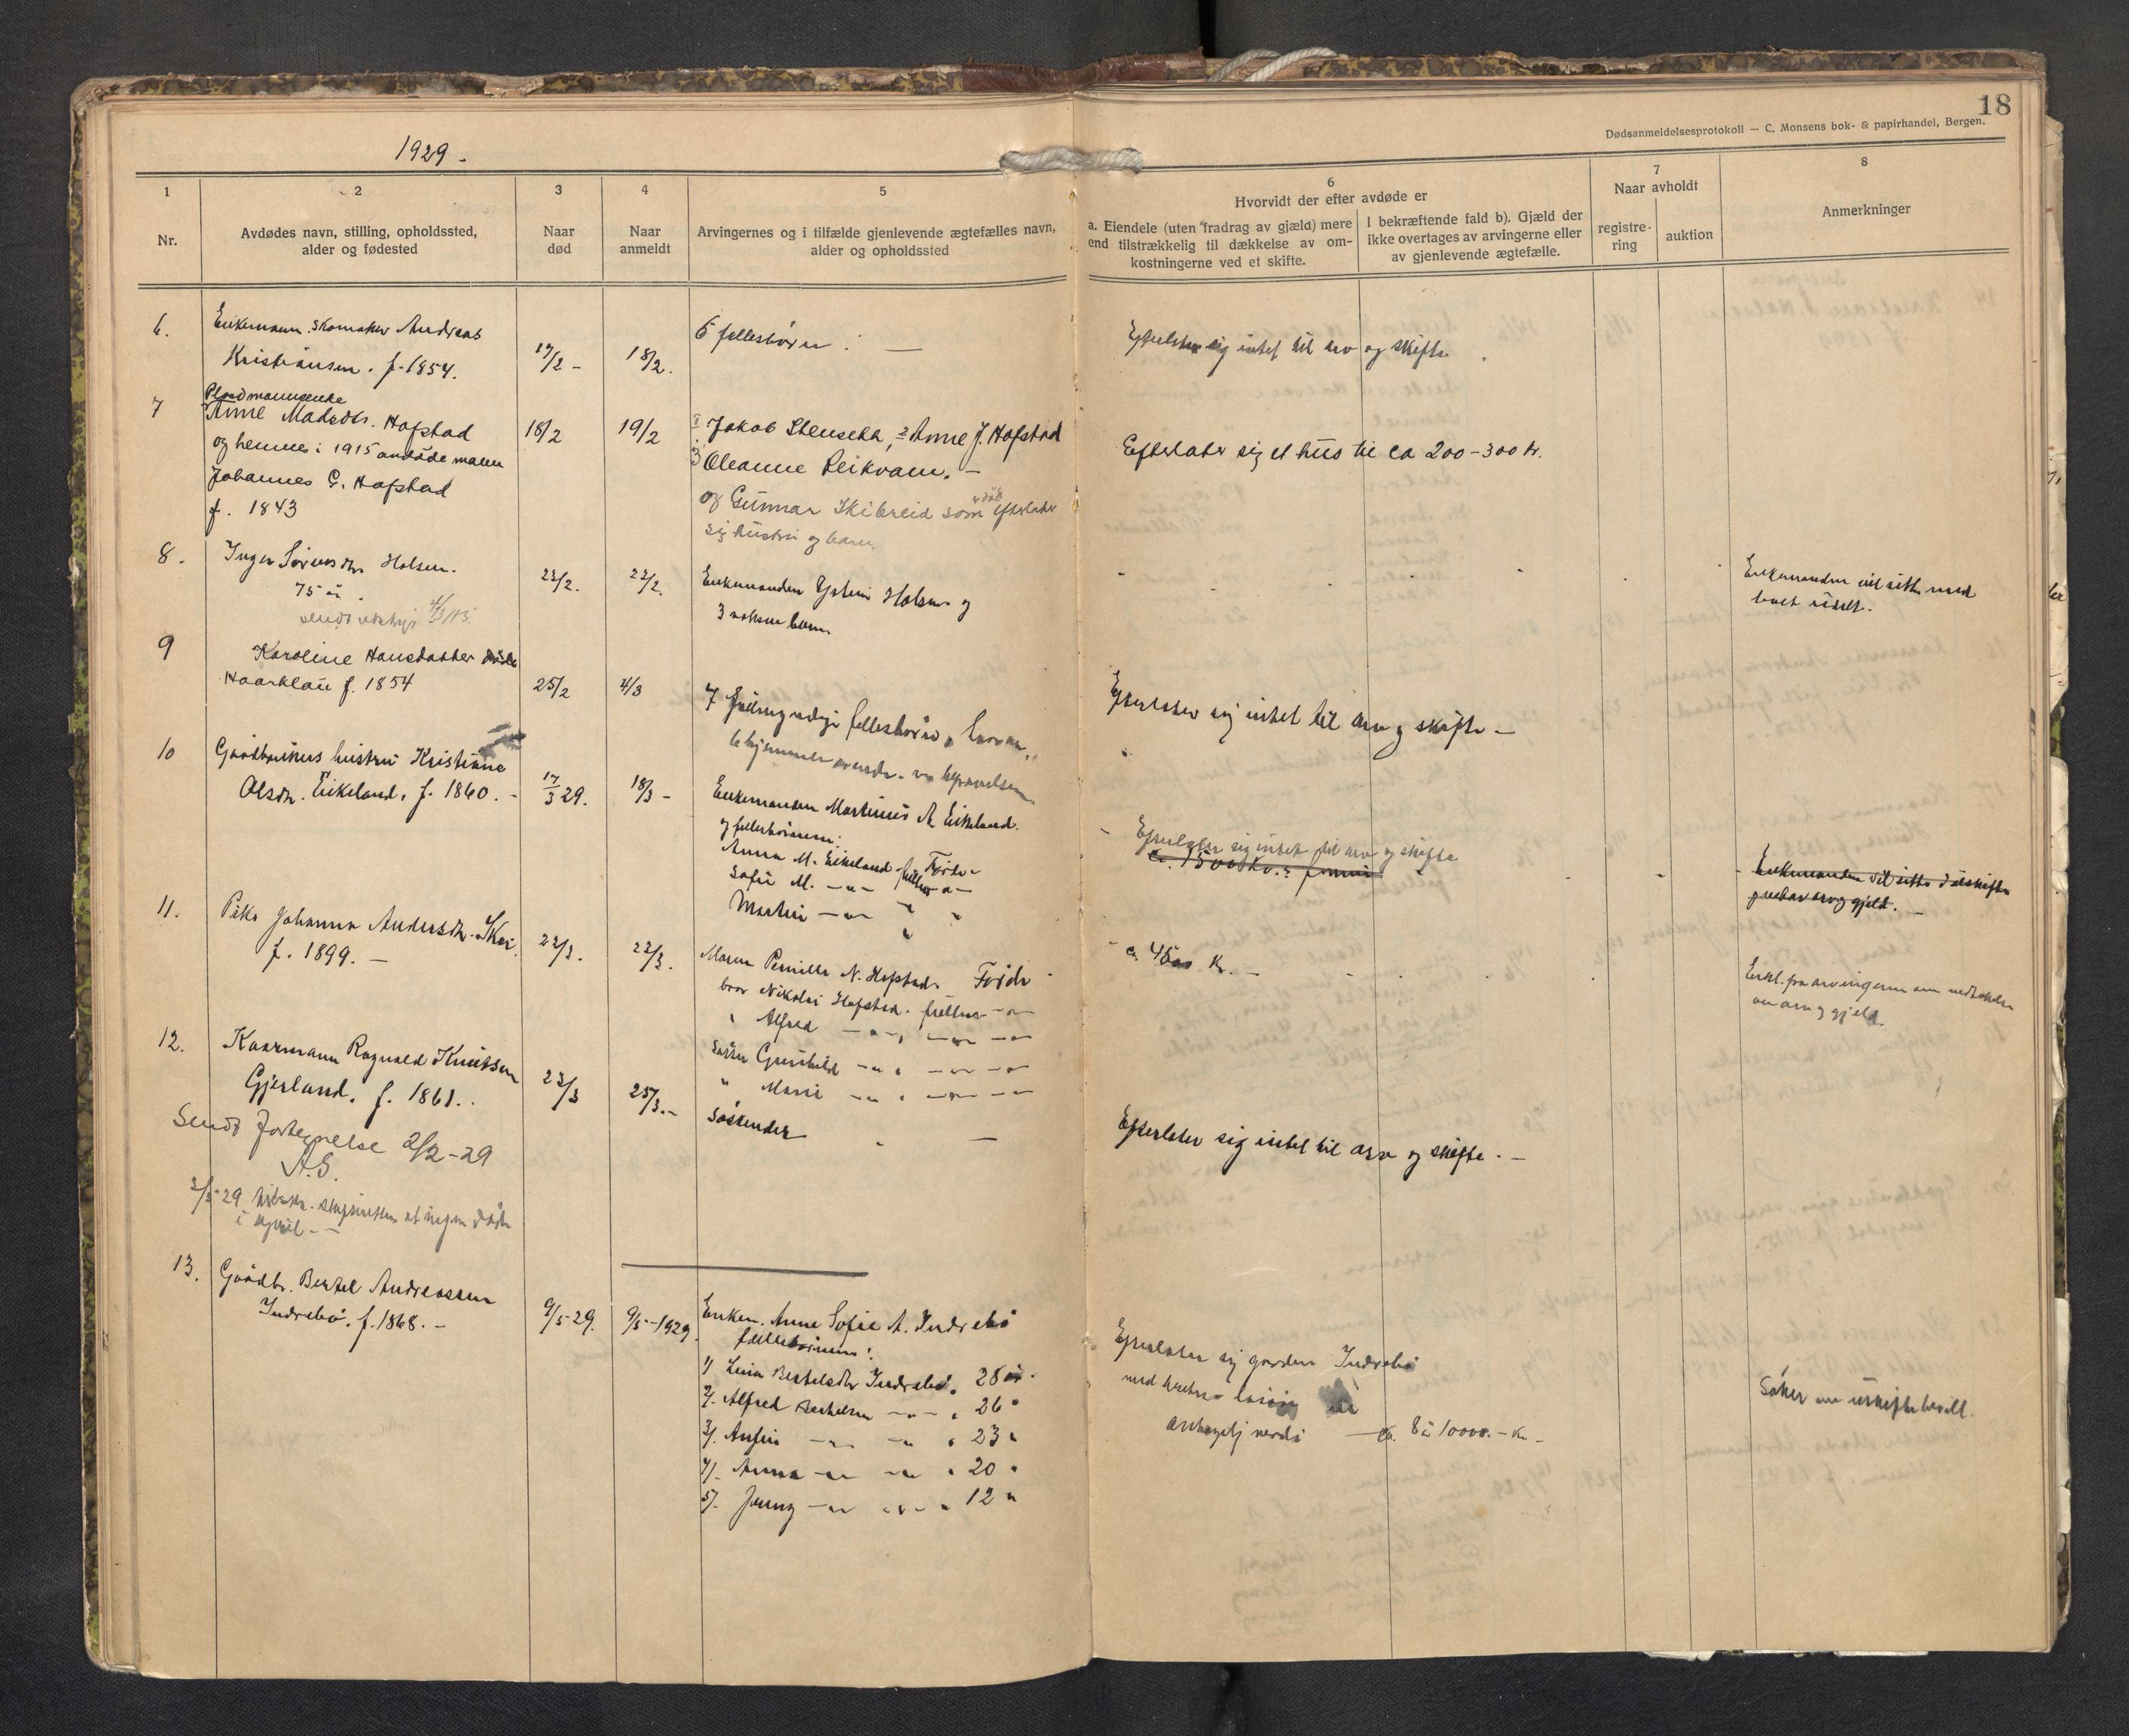 18
Dødsanmeldelsesprotokoll — C. Monsens bok- & papirhandel, Bergen.
1929.
1
Nr.
2
Avdødes navn, stilling, opholdssted,
alder og fødested
3
Naar
død
4
Naar
anmeldt
5
Arvingernes og i tilfælde gjenlevende ægtefælles navn,
alder og opholdssted
6
Hvorvidt der efter avdøde er
a. Eiendele (uten fradrag av gjæld) mere
end tilstrækkelig til dækkelse av om-
kostningerne ved et skifte.
I bekræftende fald b). Gjæld der
ikke overtages av arvingerne eller
av gjenlevende ægtefælle.
7
Naar avholdt
registre-
ring
auktion
8
Anmerkninger
6.
Enkemann skomaker Andreas
Kristiansen. f. 1854.
17/2 -
18/2.
5 fellesbörn : —
Efterlater sig intet til arv og skifte.
7
Plassmannsenke
Anne Madsdtr. Hafstad
og hennes i 1915 avdöde mann
Johannes G. Hafstad
f. 1843
18/2
19/2
1 Jakob 2 Anne J. Hafstad
3 Oleanne Reikvam. —
og Gunnar Skibreid som er död efterlater
sig hustru og barn.
Efterlater sig et hus til ca 200-300 kr.
8.
Inger Sörensdtr Holsen.
75 år.
22/2.
22/2.
Enkemanden Holsen og
3 voksne barn
Enkemanden vil sitte med
boet uskift.
9
Karoline Hansdatter
Haarklau f. 1854
25/2
4/3
7 fellesbörn
Efterlater sig intet til arv og skifte —
10
Gaardbrukers hustru Kristiane
Olsdtr. Eikeland. f. 1860. -
17/3 29.
18/3 -
Enkemanden Martinus A. Eikeland.
og fellesbörnene:
Anna M. Eikeland Förde
Sofie M. — " —
Martin — " —
Efterlater sig intet til arv og skifte
ca. 1500 Kr.
Enkemanden vil sitte i uskifte
arv og gjeld. —
11.
Pike Johanna Andersdtr. Skei.
f. 1899. —
22/3.
22/3.
Moren Pernille N. Hafstad. Förde
bror Nikolai Hafstad.
" Alfred — " —
Söster Gunhild — " —
" Marie — " —
Kr. —
Erkl. fra arvingerne om vedtakelse
av arv og gjeld.
12.
Kaarmann Ragnvald Knutsen
Gjerland. f. 1861.
23/3
25/3. -
Söskender —
Efterlater sig intet til arv og skifte. —
Sendt Fortegnelse 2/2-29
A.S.
2/5-29 skifteretten at ingen döde
i april. —
13.
Gaardbr. Bertel Andreassen
Indrebö. f. 1868. —
9/5-29.
9/5-1929.
Enken. Anne Sofie A. Indrebö
fællesbörnene:
1) Lina Bertelsdtr Indrebö. 28 år.
2). Alfred Bertelsen — " — 26 "
3). — " — " 23 "
4). Anna — " — " 20 "
5). Jenny — " — " 12 "
Efterlater sig garden Indrebö
med
verdi — ca. 8 à 10000. - Kr —
Söker om uskiftebevill.